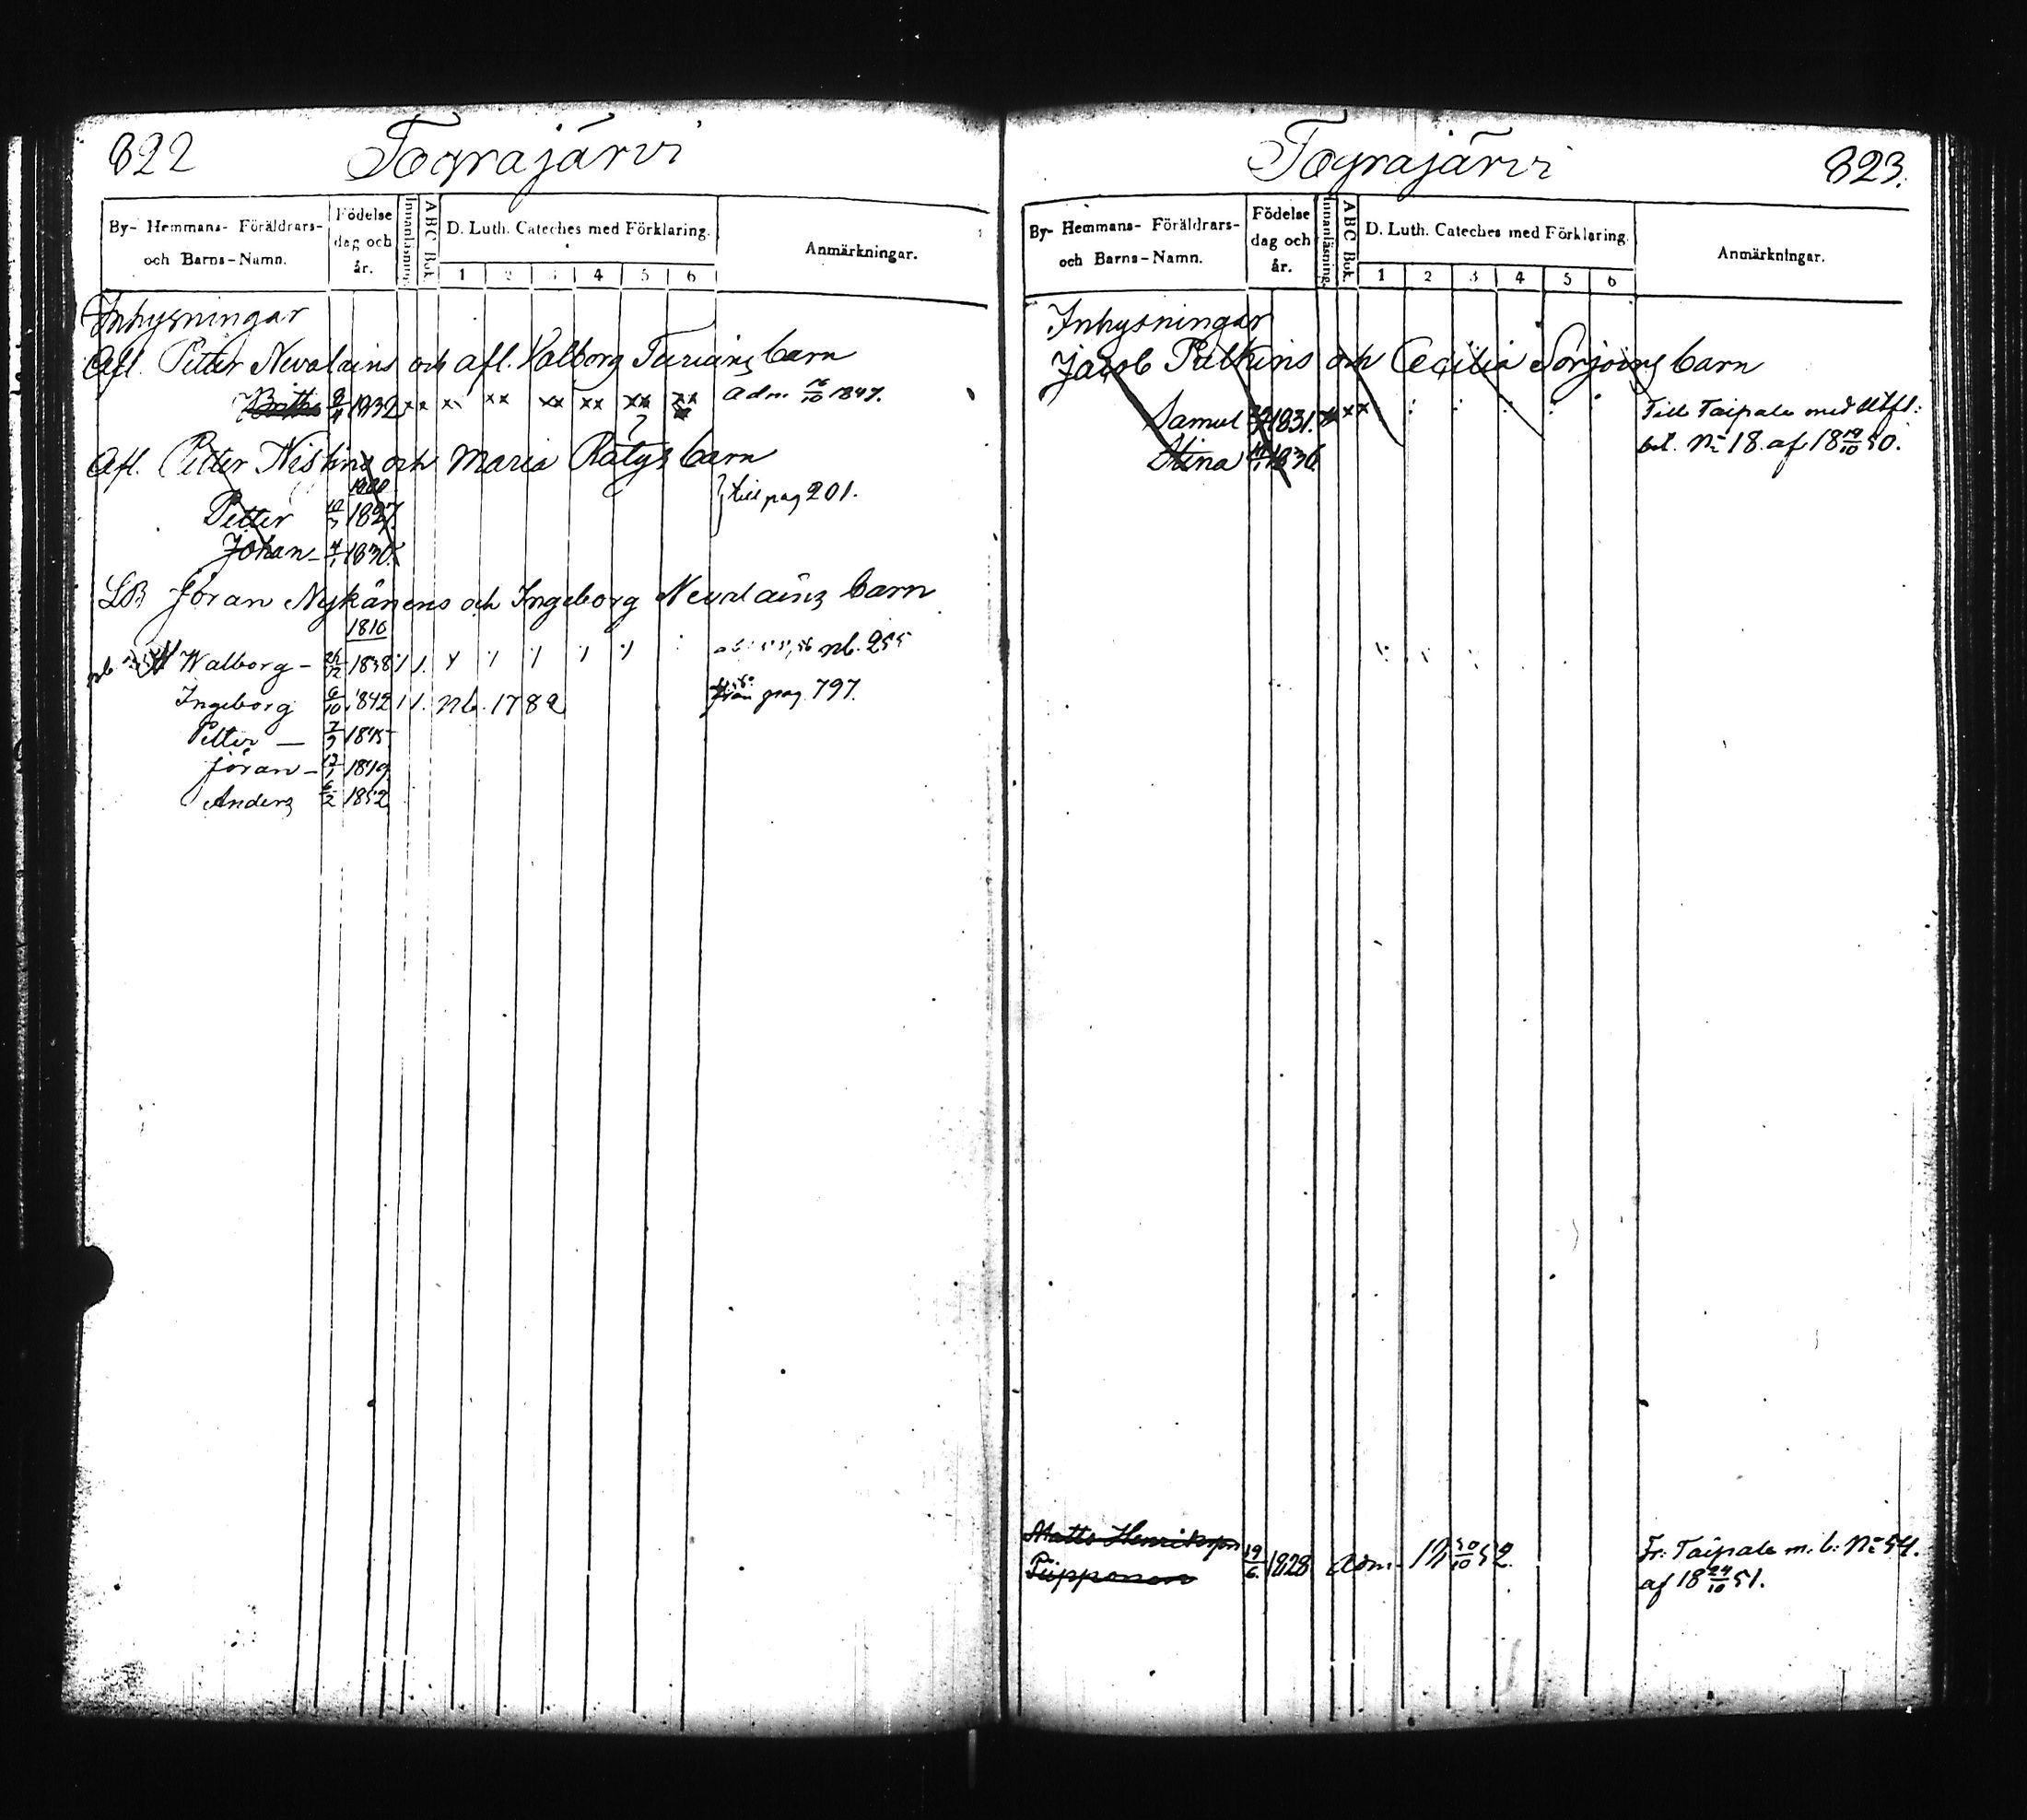 822 Tograjärvi
By- Hemmans- Föräldrars- och Barns-Namn. Födelse dag och år. Innanläsning. ABC Bok. D. Luth. Cateches med Förklaring. 1 2 3 4 5 6 Anmärkningar.
Inhysningar
Afl. Petter Nevalains och afl. Valborg Turians barn
Britha 9/4 1832 xx xx xx xx xx xx xx Adm. 1847.
?
Afl. Petter Niskins och Maria Rätys barn
Petter 1827. } till pag 201.
Johan - 4/1 1830.
LB Jöran Nykänens och Ingeborg Nevalains barn
1816
Walborg - 1838 nb. 255
Ingeborg 6/10 1842 nb. 1782 från pag. 797.
Petter — 7/9 1845
Jöran - 1849
Anders 6/2 1852
Tograjärvi 823.
By- Hemmans- Föräldrars- och Barns-Namn. Födelse dag och år. Innanläsning. ABC Bok. D. Luth. Cateches med Förklaring. 1 2 3 4 5 6 Anmärkningar.
Inhysningar
Jacob Pulkins och Cecilia Sorjoins barn
Samuel 1831. xx Till Taipale med utfl:
Stina 1836 bet. No 18. af 18 19/10 50.
Matts Henriksson
Piipponen 19/6 1828 Adm. 30/10 52. Fr: Taipale m. b: No 54.
af 18 24/10 51.